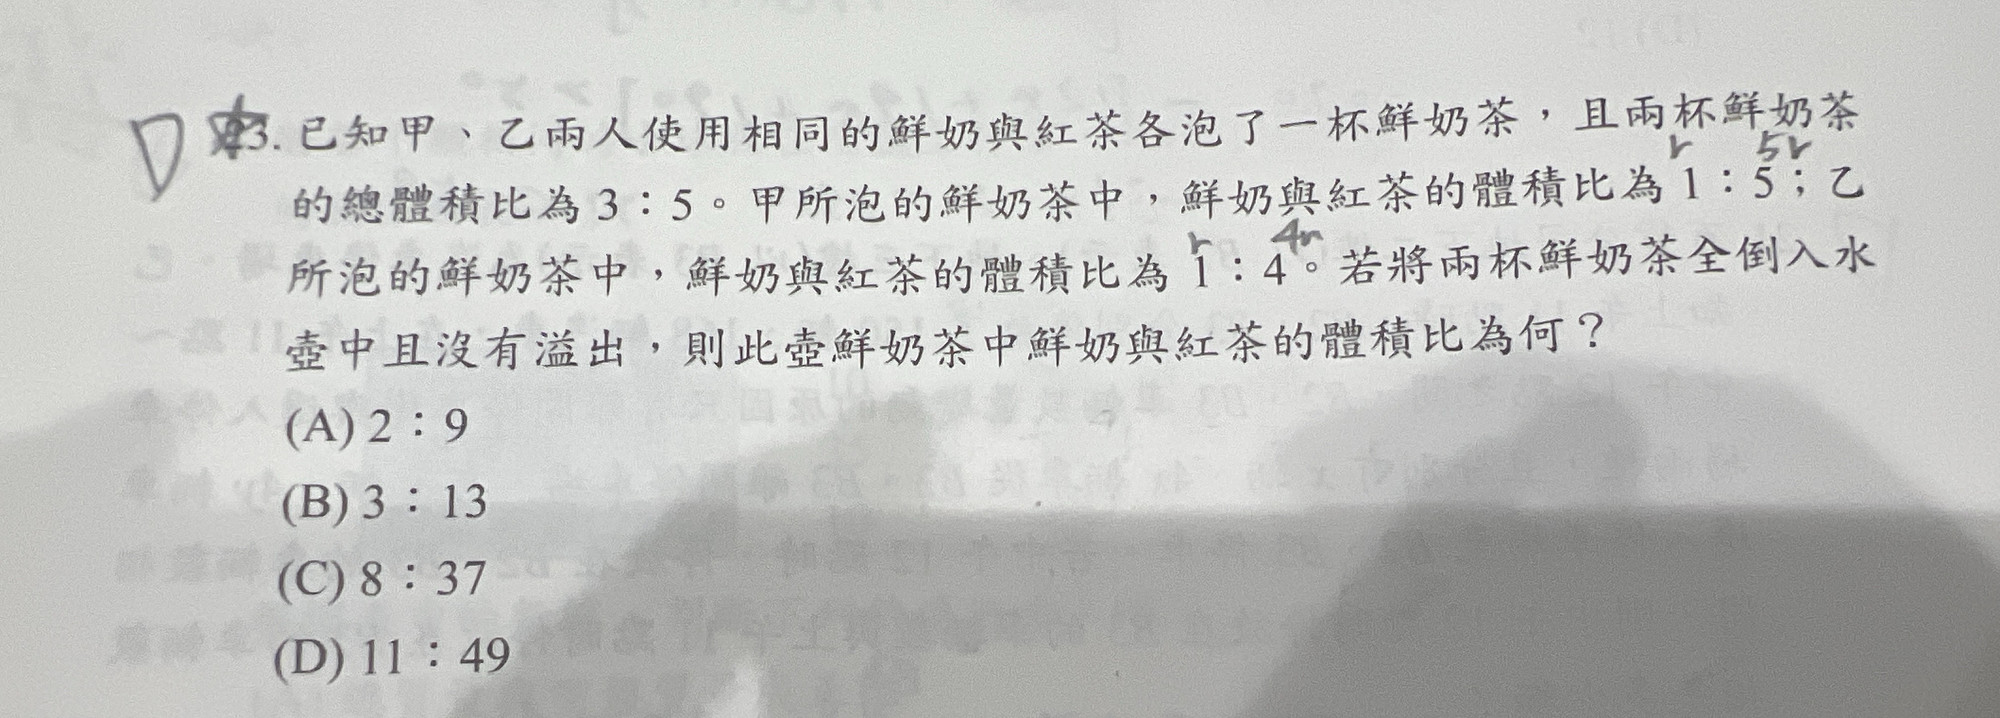 23. 已知甲、乙兩人使用相同的鮮奶與紅茶各泡了一杯鮮奶茶，且兩杯鮮奶茶
r 5r
的總體積比為 3：5。甲所泡的鮮奶茶中，鮮奶與紅茶的體積比為 1：5；乙
r 4r
所泡的鮮奶茶中，鮮奶與紅茶的體積比為 1：4。若將兩杯鮮奶茶全倒入水
壺中且沒有溢出，則此壺鮮奶茶中鮮奶與紅茶的體積比為何？
(A) 2：9
(B) 3：13
(C) 8：37
(D) 11：49